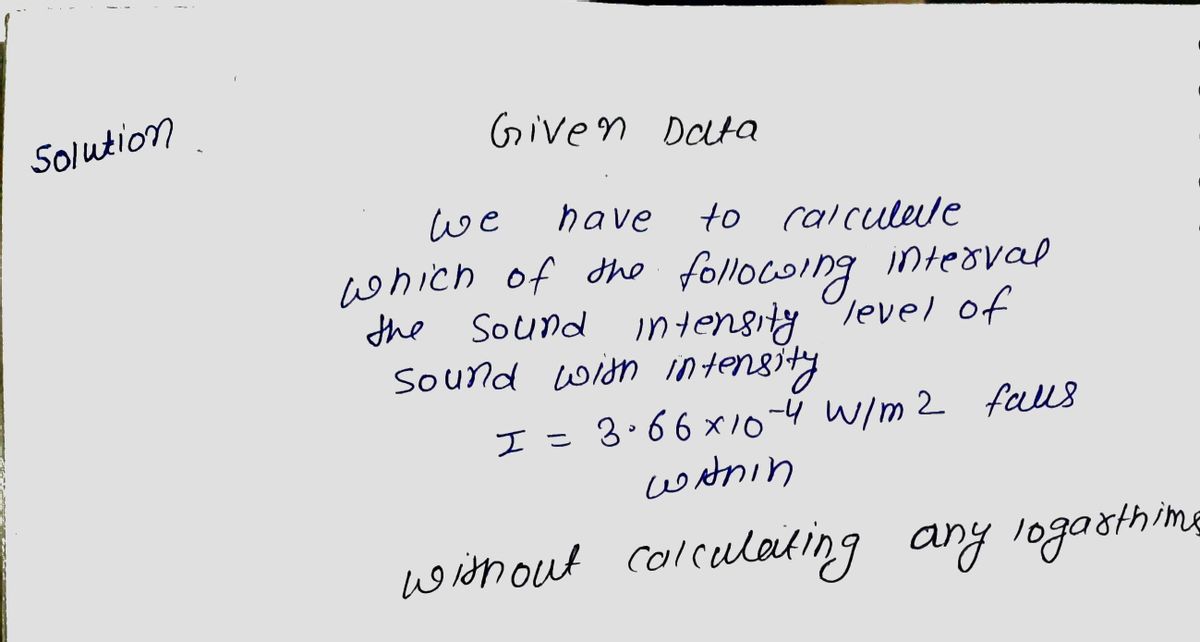 Solution
Given Data
we have to calculate
which of the following interval
the sound intensity level of
sound with intensity
I = 3.66 x 10-4 W/m2 falls
within
without calculating any logarthims